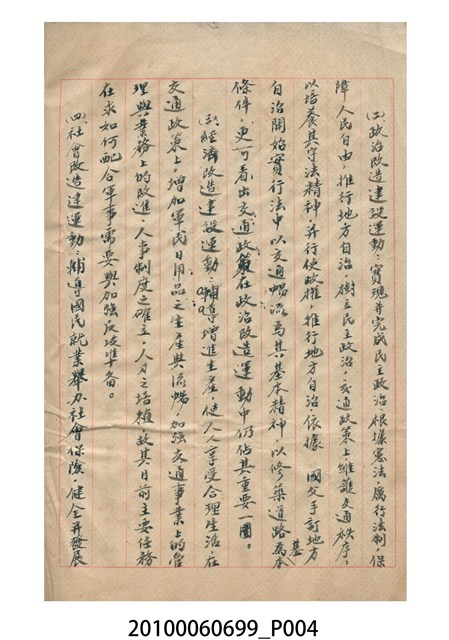 (二)政治改造建設運動：實現并完成民主政治，根據憲法，厲行法制，保
障人民自由，推行地方自治，樹立民主政治，交通政策上維護交通秩序，
以培養其守法精神，并行使政權，推行地方自治，依據　國父手訂地方
自治開始實行法中以交通暢流為其基本精神，以修築道路為基本
條件，更可看出交通政策在政治改造運動中仍佔其重要一團。
(三)經濟改造建設運動：輔導增進生產，使人人享受合理生活，在
交通政策上，增加軍民日用品之生產與流暢，加強交通事業上的管
理與業務上的改進，人事制度之確立，人才之培植，故其目前主要任務
在求如何配合軍事需要與加強反攻準備。
(四)社會改造建運動：輔導國民就業舉办社會保險，健全并發展
20100060699_P004